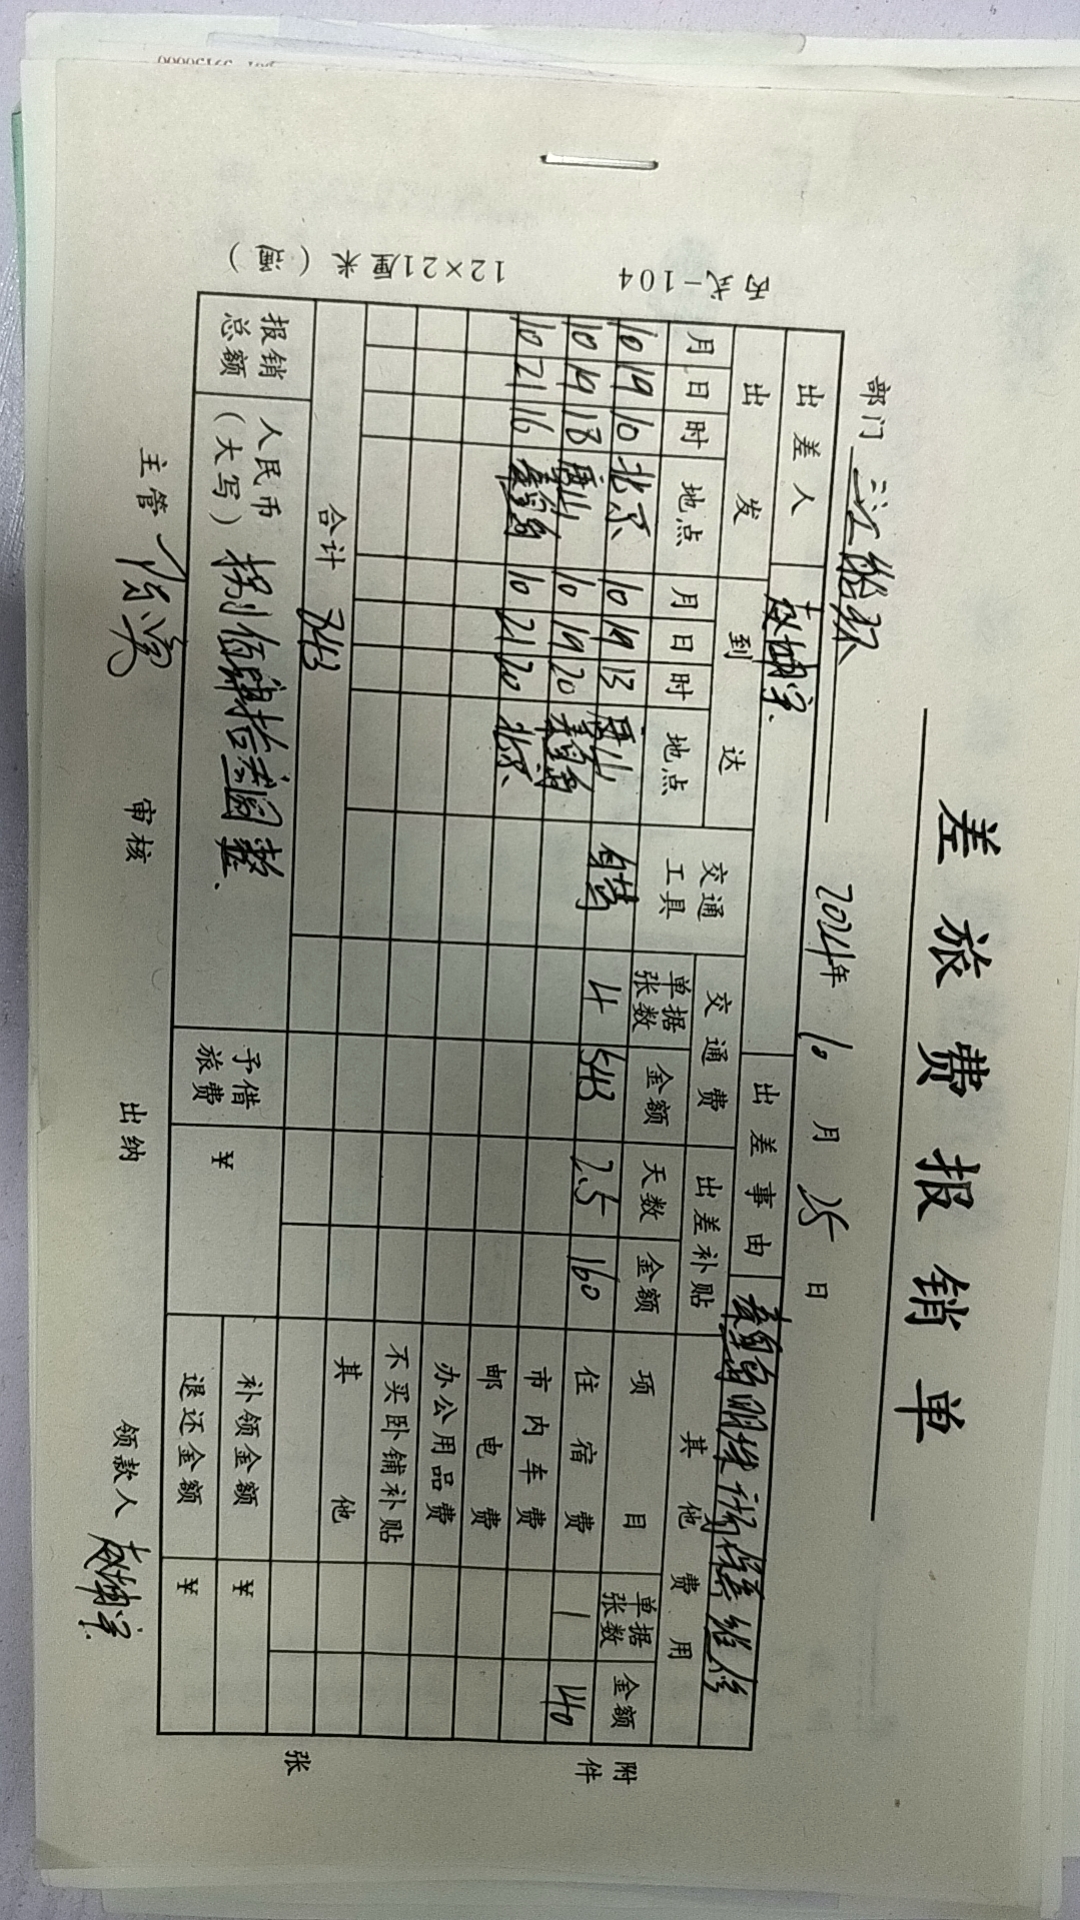 差旅费报销单
部门 2024年 10月 25日
出差人 出差事由 维修
出发 到达 交通工具 交通费 出差补贴 其他费用
月 日 时 地点 月 日 时 地点 单据张数 金额 天数 金额 项目 单据张数 金额
10 19 10 北京 10 19 13 唐山 4 543 2.5 160 住宿费 1 140
10 19 18 唐山 10 19 20 秦皇岛 市内车费
10 21 16 秦皇岛 10 21 20 北京 邮电费
办公用品费
不买卧铺补贴
合计 843 其他
报销总额 人民币(大写) 捌佰肆拾叁圆整 予借旅费 ¥ 补领金额 ¥
退还金额 ¥
主管 审核 出纳 领款人
附件 张
丙式-104 12×21厘米(通)